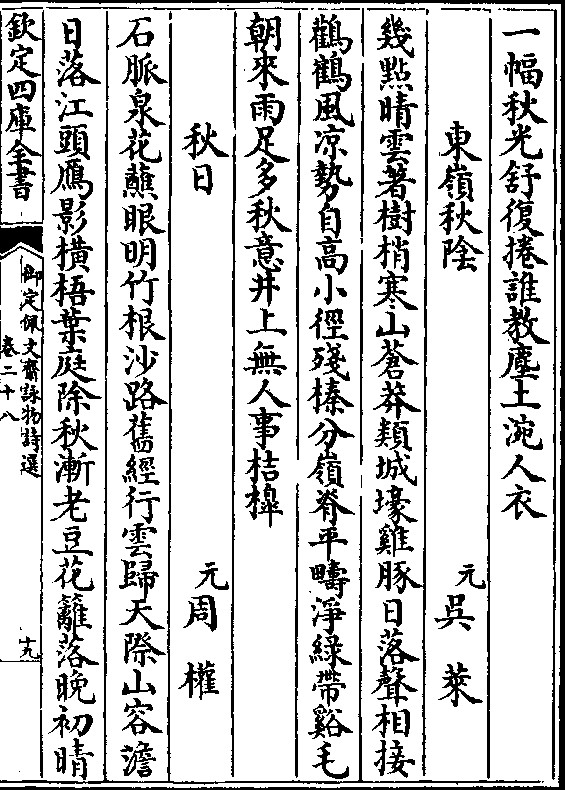 一幅秋光舒復捲誰教塵土涴人衣
東嶺秋陰
元吳萊
幾點晴雲著樹梢寒山蒼莽類城壕雞豚日落聲相接
鸛鶴風凉勢自高小徑殘榛分嶺脊平疇淨綠帶谿毛
朝來雨足多秋意井上無人事桔槔
秋日
元周權
石脈泉花蘸眼明竹根沙路舊經行雲歸天際山容澹
日落江頭鴈影橫梧葉庭除秋漸老豆花籬落晚初晴
欽定四庫全書
御定佩文齋詠物詩選
卷二十八
十九